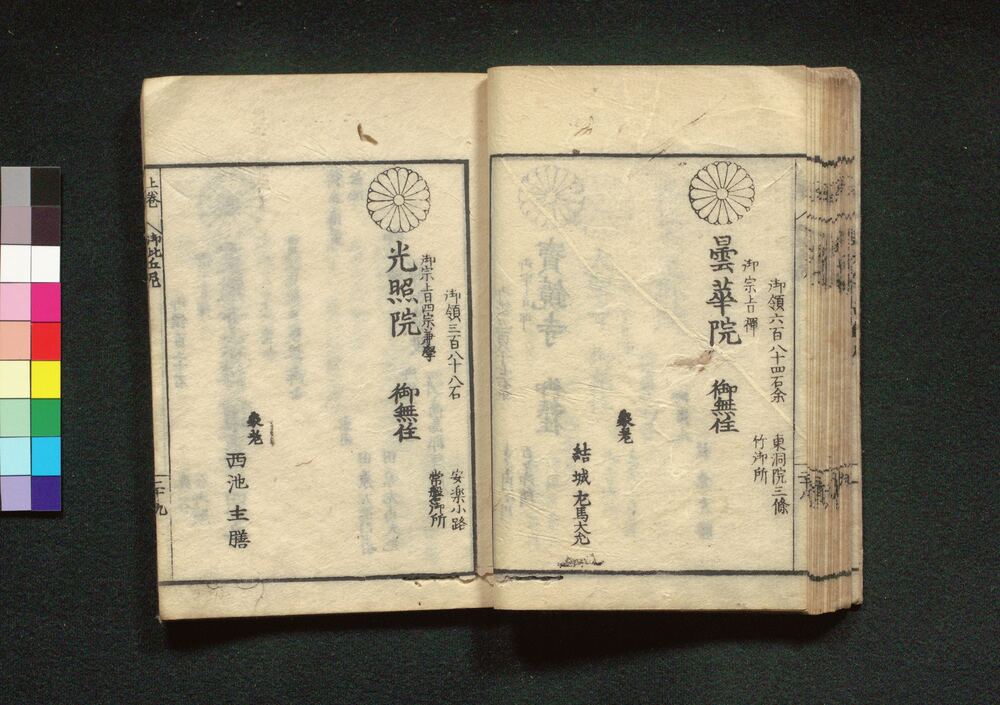 御領六百八十四石余
東洞院三條
竹御所
御宗旨禅
曇華院
御無住
家老
結城左馬大允
御領三百八十八石
安楽小路
常盤御所
御宗旨四宗兼學
光照院
御無住
家老
西池主膳
上巻
御比丘尼
二十九